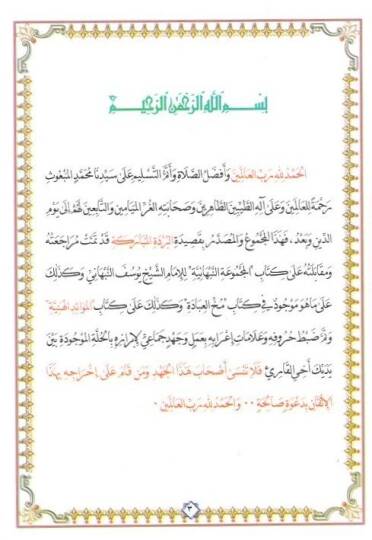 بِسْمِ اللَّهِ الرَّحْمَنِ الرَّحِيمِ
الحَمْدُ لِلَّهِ رَبِّ العَالَمِينَ وَأَفْضَلُ الصَّلَاةِ وَأَتَمُّ التَّسْلِيمِ عَلَى سَيِّدِنَا مُحَمَّدٍ المَبْعُوثِ
رَحْمَةً لِلْعَالَمِينَ وَعَلَى آلِهِ الطَّيِّبِينَ الطَّاهِرِينَ وَصَحَابَتِهِ الغُرِّ المَيَامِينِ وَالتَّابِعِينَ لَهُمْ إِلَى يَوْمِ
الدِّينِ وَبَعْدُ، فَهَذَا المَجْمُوعُ وَالمُصَدَّرُ بِقَصِيدَةِ البُرْدَةِ المُبَارَكَةِ قَدْ تَمَّتْ مُرَاجَعَتُهُ
وَمُقَابَلَتُهُ عَلَى كِتَابِ "المَجْمُوعَةِ النَّبْهَانِيَّةِ" لِلْإِمَامِ الشَّيْخِ يُوسُفَ النَّبْهَانِيِّ وَكَذَلِكَ
عَلَى مَا هُوَ مَوْجُودٌ فِي كِتَابِ "مُخُّ العِبَادَةِ" وَكَذَلِكَ عَلَى كِتَابِ "المَوَائِدِ الهَنِيَّةِ"
ضَبْطُ حُرُوفِهِ وَعَلَامَاتِ إِعْرَابِهِ بِعَمَلٍ وَجُهْدٍ جَمَاعِيٍّ لِإِبْرَازِهِ بِالحُلَّةِ المَوْجُودَةِ بَيْنَ
يَدَيْكَ أَخِي القَارِئُ فَلَا تَنْسَى أَصْحَابَ هَذَا الجُهْدِ وَمَنْ قَامَ عَلَى إِخْرَاجِهِ بِهَذَا
الإِتْقَانِ بِدَعْوَةٍ صَالِحَةٍ .. وَالحَمْدُ لِلَّهِ رَبِّ العَالَمِينَ .
٣